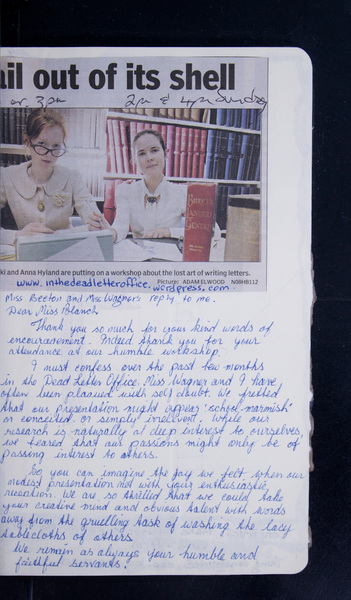 ail out of its shell
3pm 2pm & 4pm Sunday
ki and Anna Hyland are putting on a workshop about the lost art of writing letters.
Picture: ADAM ELWOOD N08HB112
www.inthedeadletteroffice.wordpress.com
Miss Beeton and Mrs Wagner's reply to me.
Dear Miss Polanch
Thank you so much for your kind words of
encouragement. Indeed thank you for your
attendance at our humble workshop.
I must confess over the past few months
in the Dead Letter Office, Miss Wagner and I have
often been plagued with self doubt. We fretted
that our presentation might appear 'school-marmish'
or conceited or simply irrelivent. While our
research is naturally of deep interest to ourselves,
we feared that our passions might only be of
passing interest to others.
So you can imagine the joy we felt when our
modest presentation met with your enthusiastic
reception. We are so thrilled that we could take
your creative mind and obvious talent with words
away from the gruelling task of washing the lacy
tablecloths of others.
We remain as always your humble and
faithful servants.